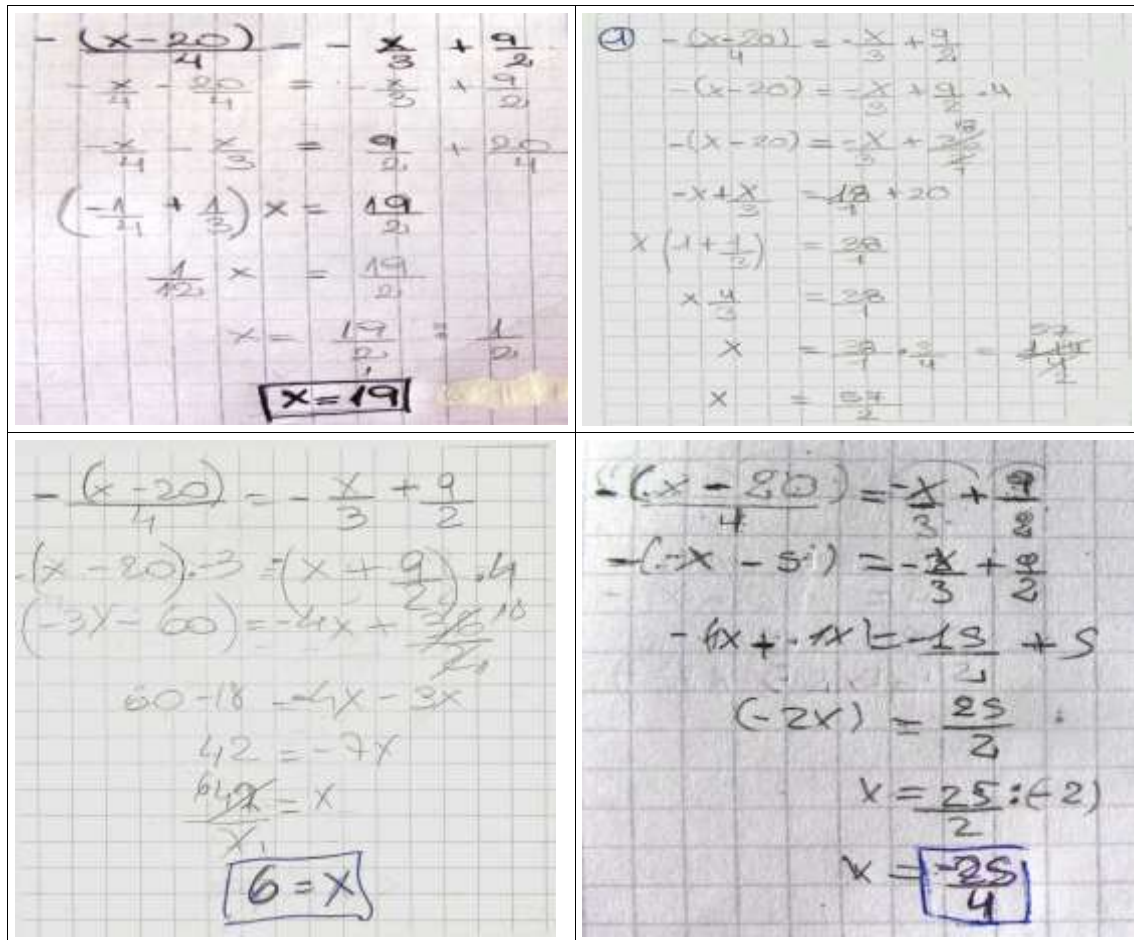 -(x-20)/4 = -x/3 + 9/2
-x/4 - 20/4 = -x/3 + 9/2
-x/4 - x/3 = 9/2 + 20/4
(-1/4 + 1/3) x = 19/2
1/12 x = 19/2
x = 19/2 : 1/2
x = 19
① -(x-20)/4 = -x/3 + 9/2
-(x-20) = -x/3 + 9/2 · 4
-(x-20) = -x/3 +
-x + x/3 = 18/1 + 20
x (1 + 1/3) = 38/1
x 4/3 = 38/1
x = 38/1 · 3/4 = 114/4 57 2
x = 57/2
-(x-20)/4 = -x/3 + 9/2
-(x-20)·-3 = (x + 9/2)·4
(-3x - 60) = -4x + 36/2 18
60-18 = -4x - 3x
42 = -7x
= x
6 = x
-(x-20)/4 = -x/3 + 9/2
-(-x - 5) = -x/3 + 9/2
= -15/2 + 5
(-2x) = 25/2
x = 25/2 : (-2)
x = -25/4